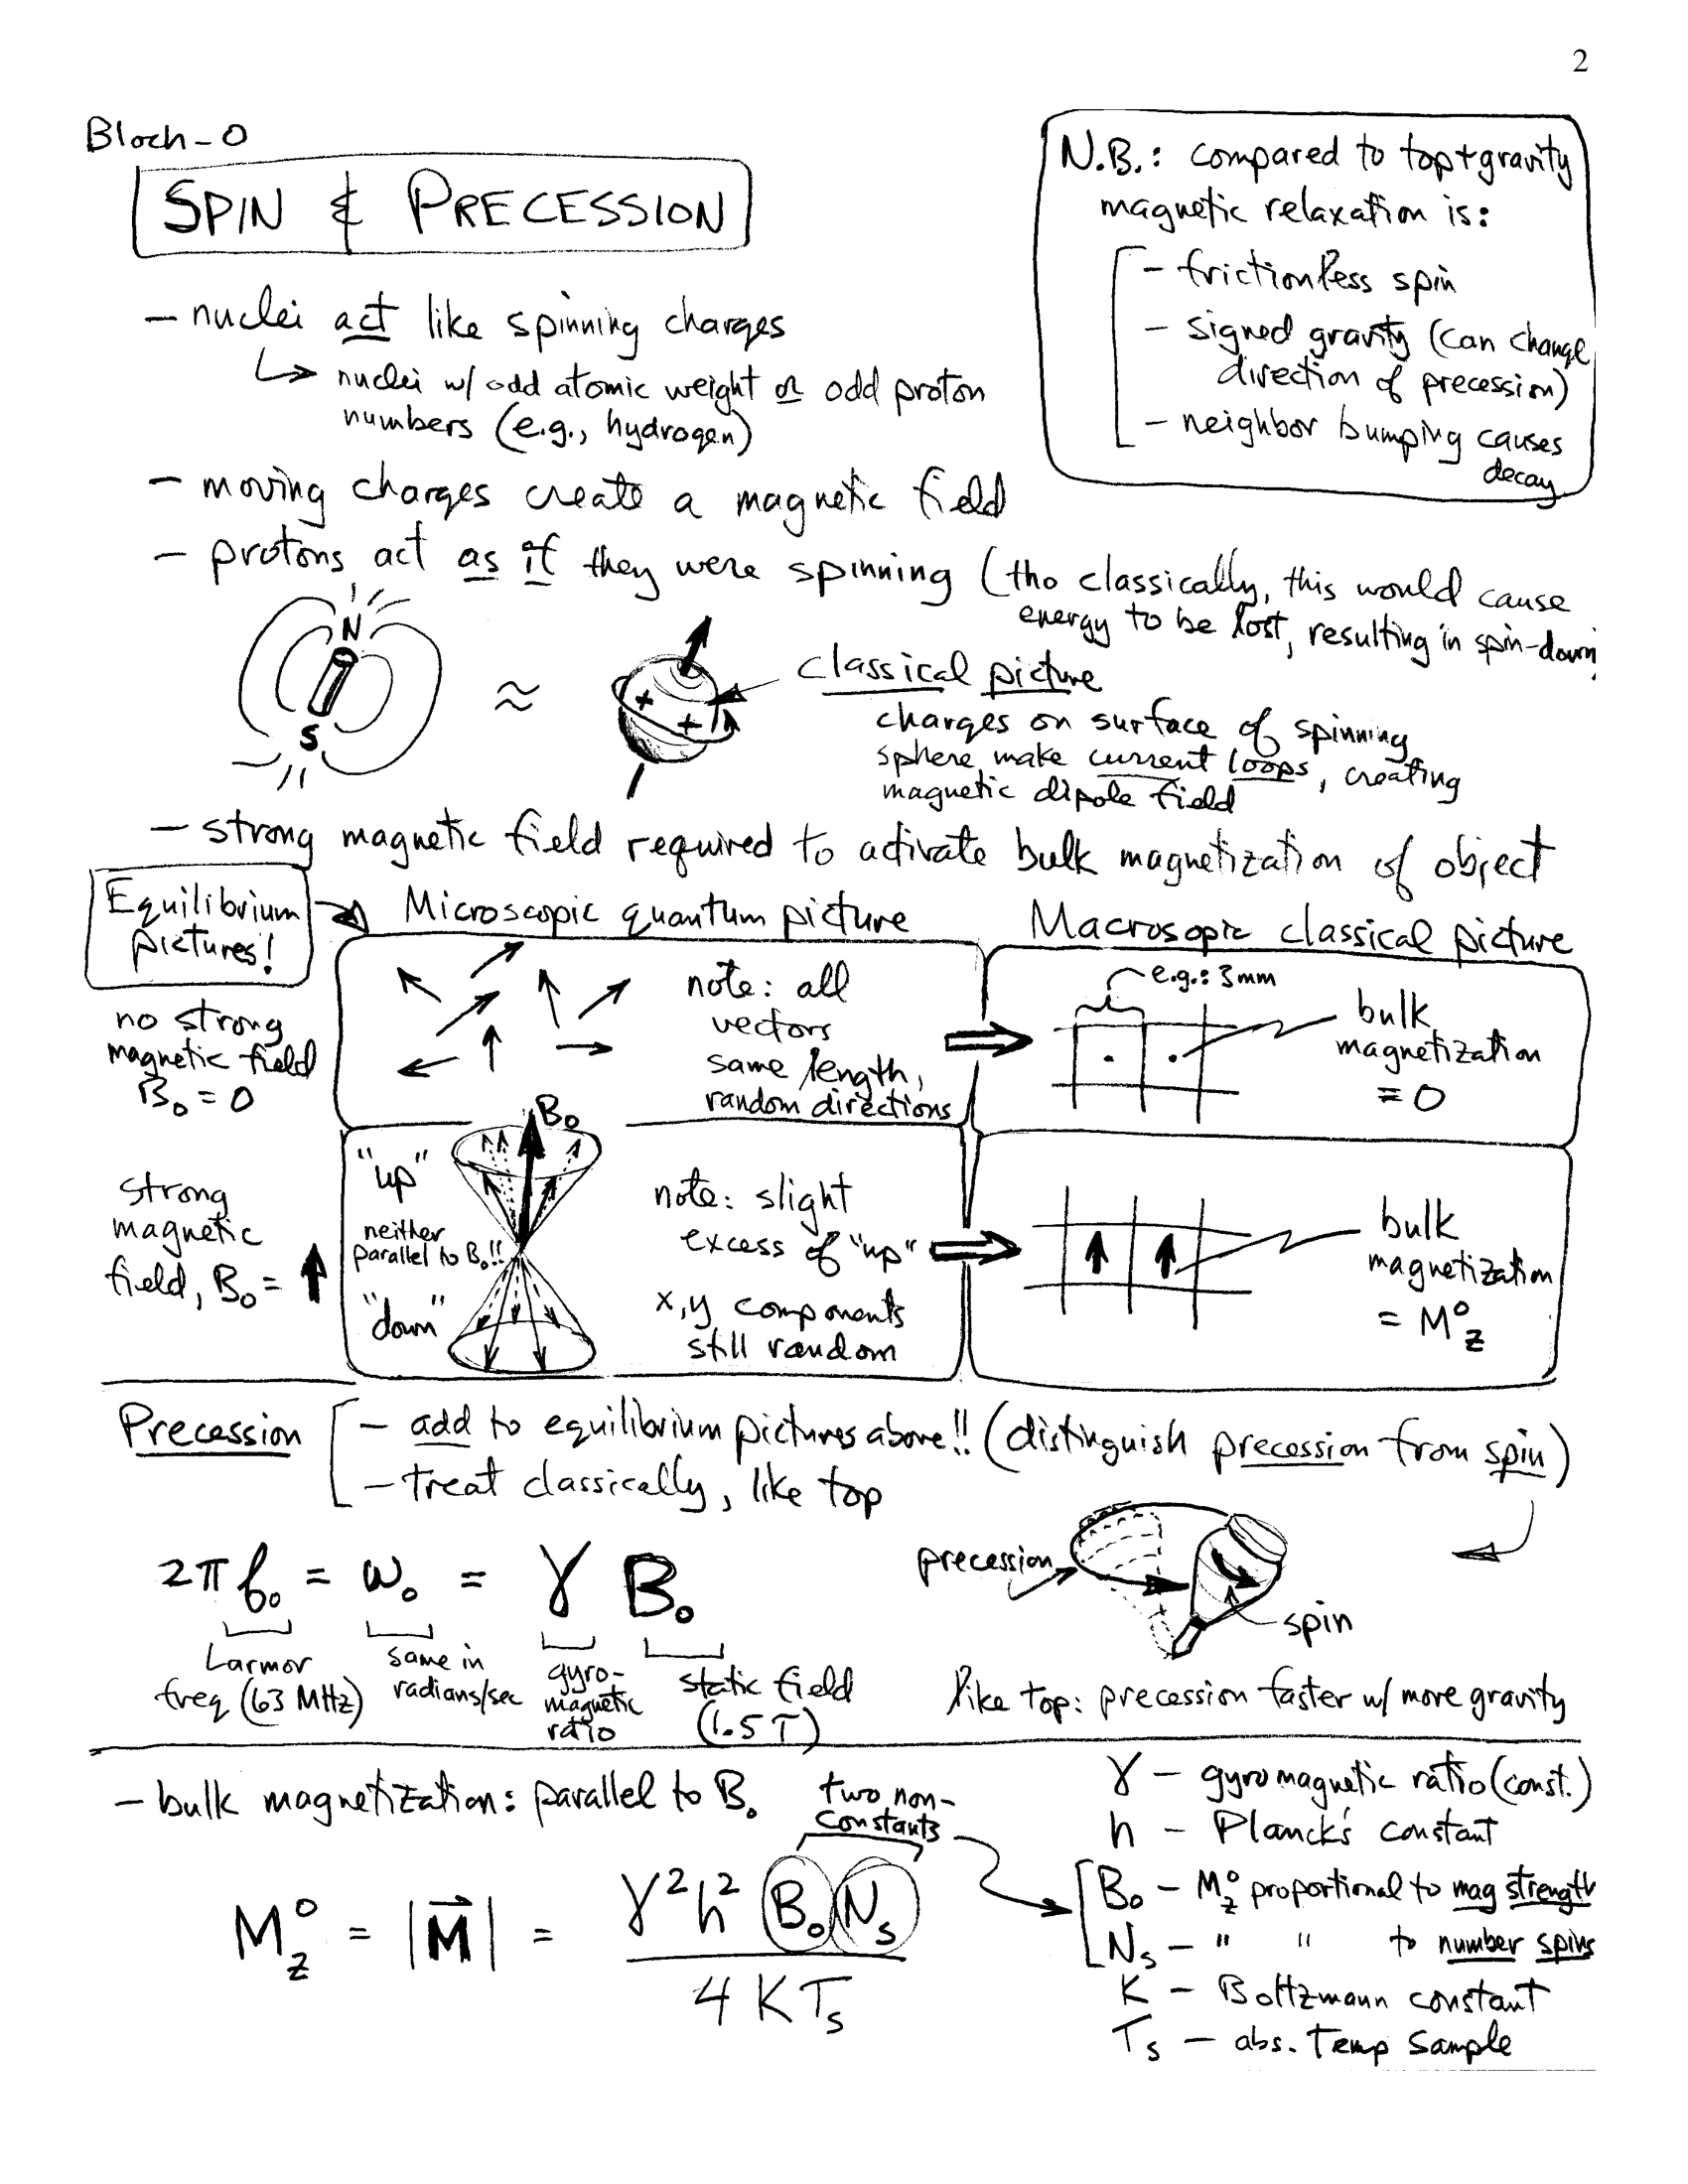 2
Bloch-0
SPIN & PRECESSION
N.B.: compared to top+gravity
magnetic relaxation is:
- frictionless spin
- signed gravity (can change
direction of precession)
- neighbor bumping causes
decay
- nuclei act like spinning charges
↳ nuclei w/ odd atomic weight or odd proton
numbers (e.g., hydrogen)
- moving charges create a magnetic field
- protons act as if they were spinning (tho classically, this would cause
energy to be lost, resulting in spin-down)
N
S
≈
+ +
classical picture
charges on surface of spinning
sphere make current loops, creating
magnetic dipole field
- strong magnetic field required to activate bulk magnetization of object
Equilibrium
pictures!
Microscopic quantum picture
Macrosopic classical picture
no strong
magnetic field
B₀ = 0
note: all
vectors
same length,
random directions
e.g.: 3mm
bulk
magnetization
= 0
strong
magnetic
field, B₀ = ↑
B₀
"up"
neither
parallel to B₀!!
"down"
note: slight
excess of "up"
x,y components
still random
bulk
magnetization
= M⁰z
Precession
- add to equilibrium pictures above!! (distinguish precession from spin)
- treat classically, like top
2π f₀ = ω₀ = γ B₀
Larmor
freq (63 MHz)
same in
radians/sec
gyro-
magnetic
ratio
static field
(1.5 T)
precession
spin
like top: precession faster w/ more gravity
- bulk magnetization: parallel to B₀
two non-
constants
M⁰z = |M⃗| = γ²h² B₀ Ns
4 K Ts
γ - gyromagnetic ratio (const.)
h - Planck's constant
B₀ - M⁰z proportional to mag strength
Ns - " " to number spins
K - Boltzmann constant
Ts - abs. temp sample